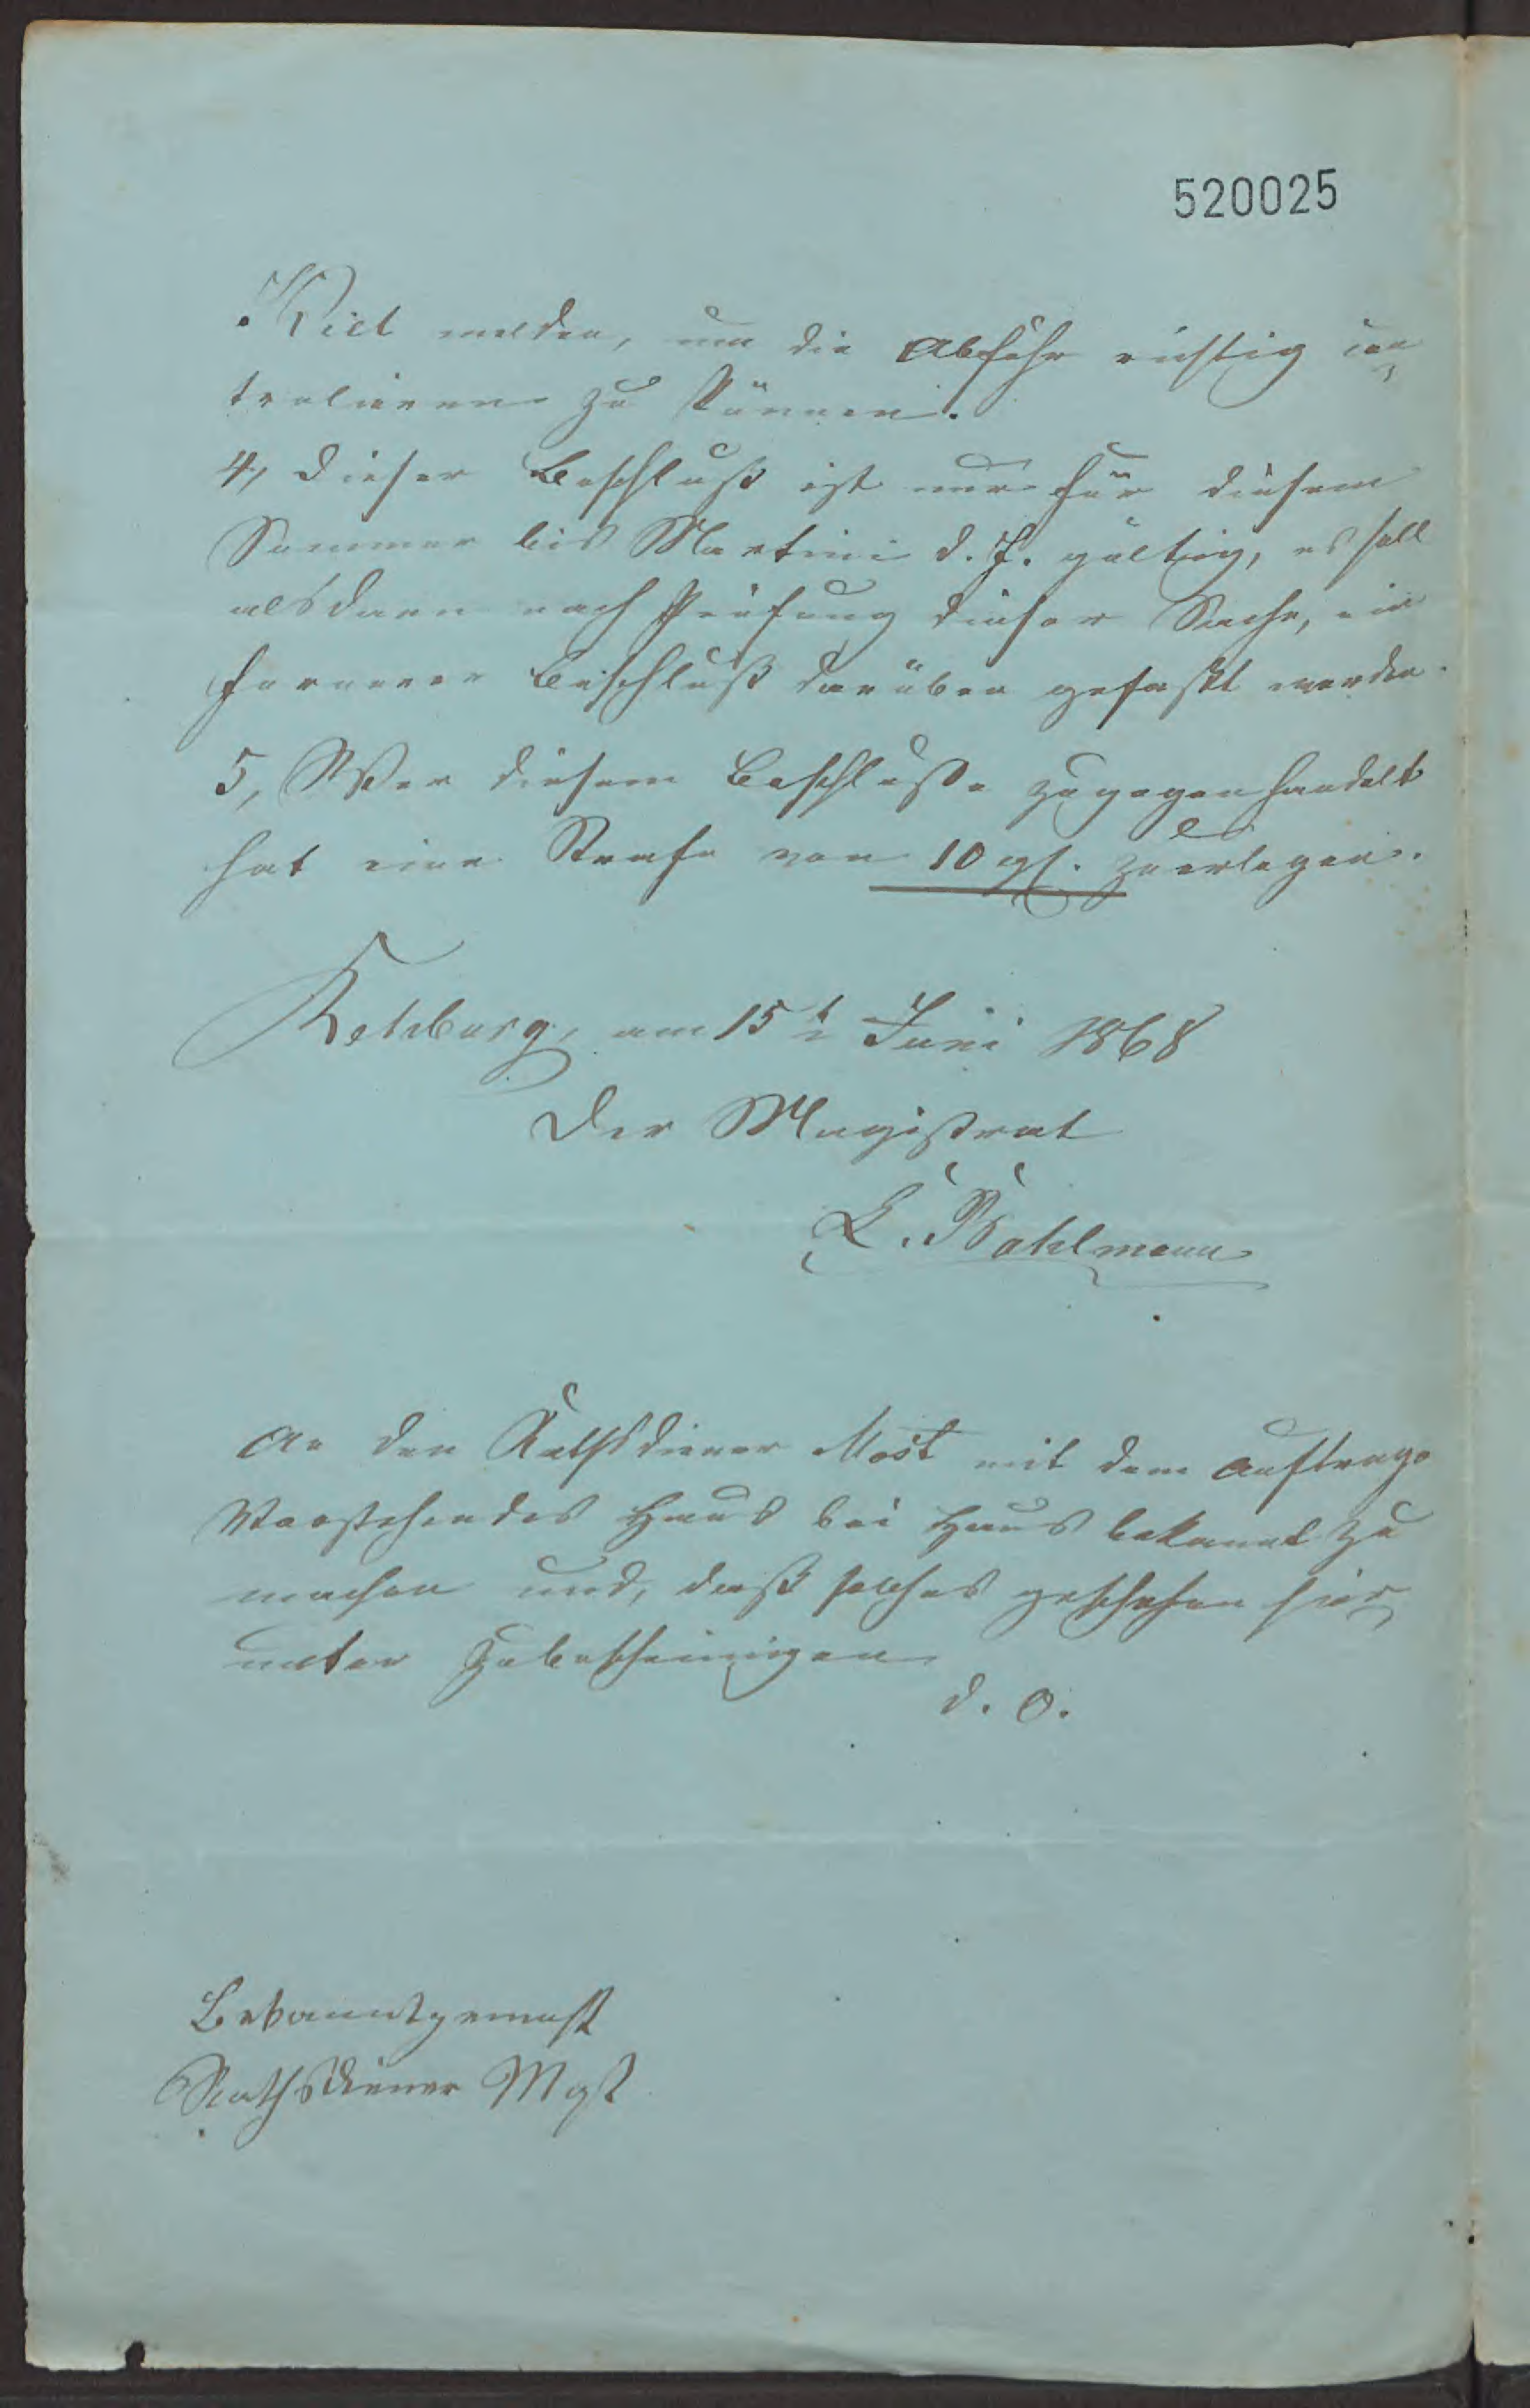 520025
Kiel melden, um die Abfuhr richtig con¬
troliren zu können.
4, Dieser Beschluß ist nur für diesem
Sommer bis Martini d. J. gültig, es soll
alsdann nach Prüfung dieser Sache, ein
fernerer Beschluß darüber gefaßt werden.
5, Wer diesem Beschluße zugegen handelt
hat eine Strafe von 10 gf. zu erlegen.
Rehburg, am 15t Juni 1868
Der Magistrat
E. Bahlmann
An den Rathsdiener Most mit dem Auftrage
Vorstehendes Haus bei Haus bekannt zu
machen und, daß solches geschehen hier¬
unter zu bescheinigen
d. O.
Bekanntgemacht
Rathsdiener Most